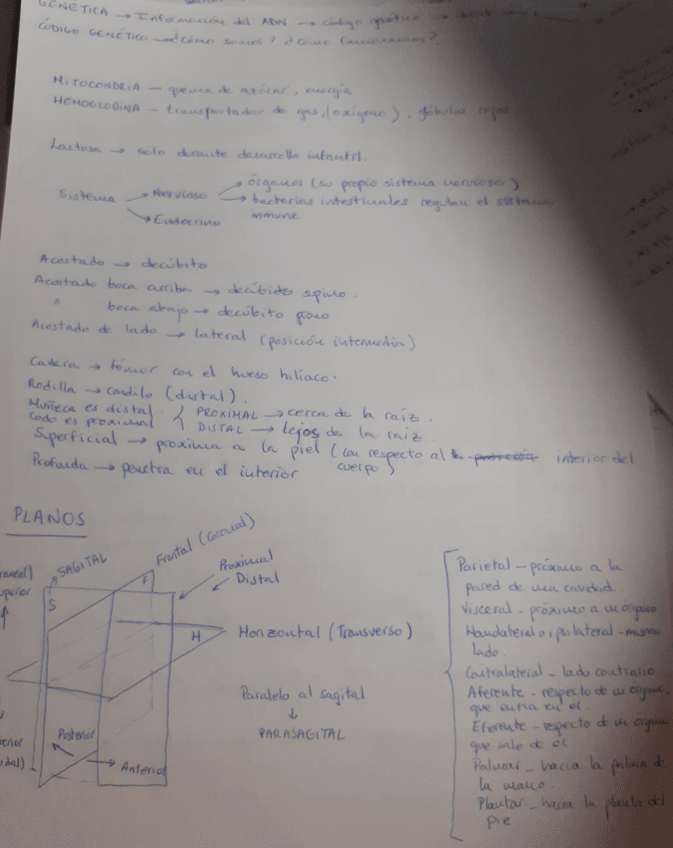 GENÉTICA → Información del ADN → código genético →
CÓDIGO GENÉTICO → ¿Cómo somos? ¿Cómo funcionamos?
MITOCONDRIA — quema de azúcar, energía
HEMOGLOBINA — transportador de gas, (oxígeno), glóbulos rojos
Lactosa → solo durante desarrollo infantil.
Sistema → Nervioso → órganos (su propio sistema nervioso)
→ bacterias intestinales regulan el sistema inmune
→ Endocrino
Acostado → decúbito
Acostado boca arriba → decúbido supino.
" boca abajo → decúbito prono.
Acostado de lado → lateral (posición intermedia)
Cadera → fémur con el hueso hilíaco.
Rodilla → condilo (distal).
Muñeca es distal. { PROXIMAL → cerca de la raíz.
Codo es proximal. DISTAL → lejos de la raíz.
Superficial → proxima a la piel (con respecto al interior del
cuerpo)
Profunda → penetra en el interior
PLANOS
SAGITAL
Frontal (Coronal)
Proximal
Distal
S
F
H
Horizontal (Transverso)
Posterior
Anterior
Paralelo al sagital
↓
PARASAGITAL
Parietal — próximo a la
pared de una cavidad.
Visceral — próximo a un órgano
lateral — mismo
lado.
Contralateral — lado contrario
Aferente — respecto de un órgano,
que entra en él.
Eferente — respecto de un órgano
que sale de él.
Palmar — hacia la palma de
la mano.
Plantar — hacia la planta del
pie